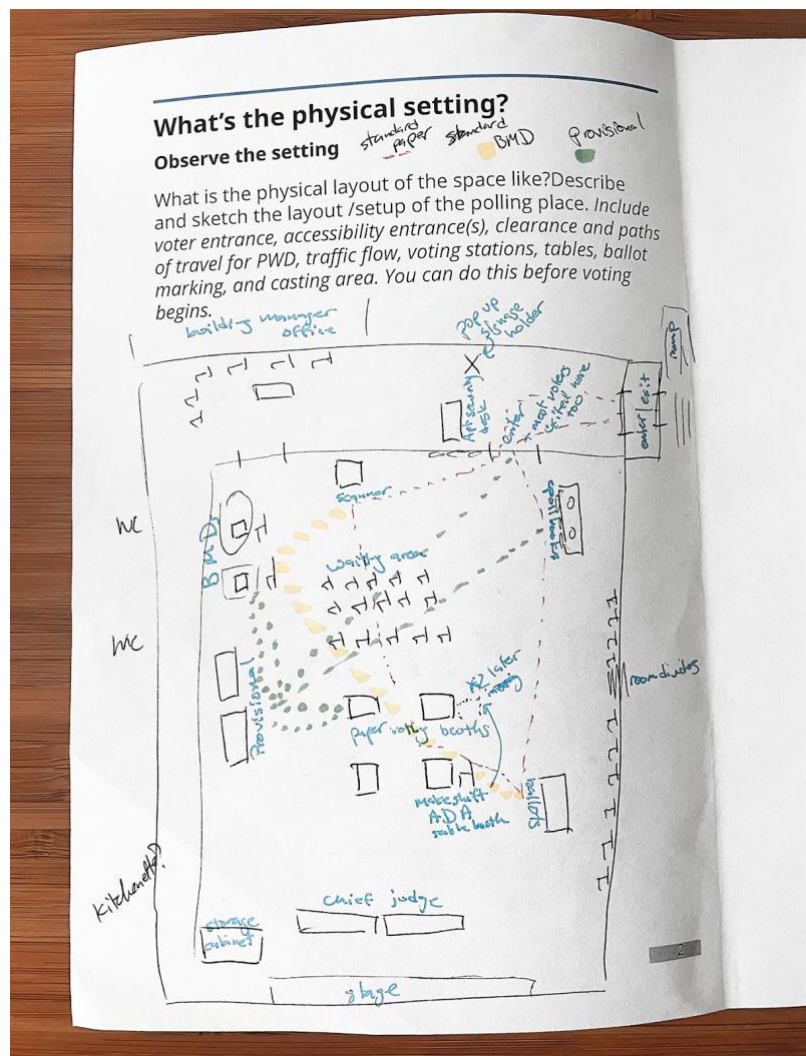 What's the physical setting?
Observe the setting
standard paper
standard BMD
provisional
What is the physical layout of the space like?Describe
and sketch the layout /setup of the polling place. Include
voter entrance, accessibility entrance(s), clearance and paths
of travel for PWD, traffic flow, voting stations, tables, ballot
marking, and casting area. You can do this before voting
begins.
building manager
office
pop up
signage
holder
ramp
Apt security
desk
enter
most voters
exited here
too
enter/exit
scanner
pollbooks
WC
BMD
waiting area
WC
room divider
Provisional
x2 later
paper voting booths
makeshift
ADA
booth
ballots
Kitchenette?
chief judge
storage
cabinet
stage
2